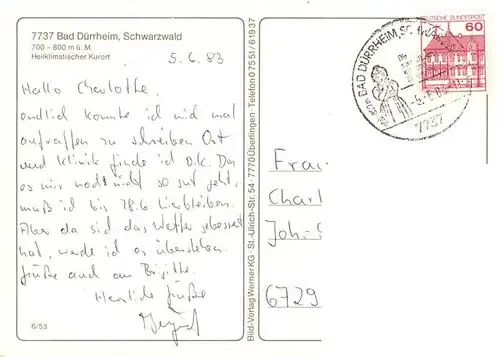 7737 Bad Dürrheim, Schwarzwald
700 – 800 m ü. M.
Heilklimatischer Kurort
5.6.83
Hallo Charlotte,
endlich konnte ich mich mal
aufraffen zu schreiben. Ort
und Klinik finde ich o.k. Da
es mir noch nicht so gut geht,
muß ich bis 28.6. hierbleiben.
Aber da sich das Wetter gebessert
hat, werde ich es überstehen.
Grüße auch an Brigitte.
Herzliche Grüße
6/53
Bild-Verlag Werner KG · St.-Ulrich-Str. 54 · 7770 Überlingen · Telefon 07551/61937
BAD DÜRRHEIM, SCHWARZW
7737
DEUTSCHE BUNDESPOST
60
Frau
Charl
Joh.-S
6729